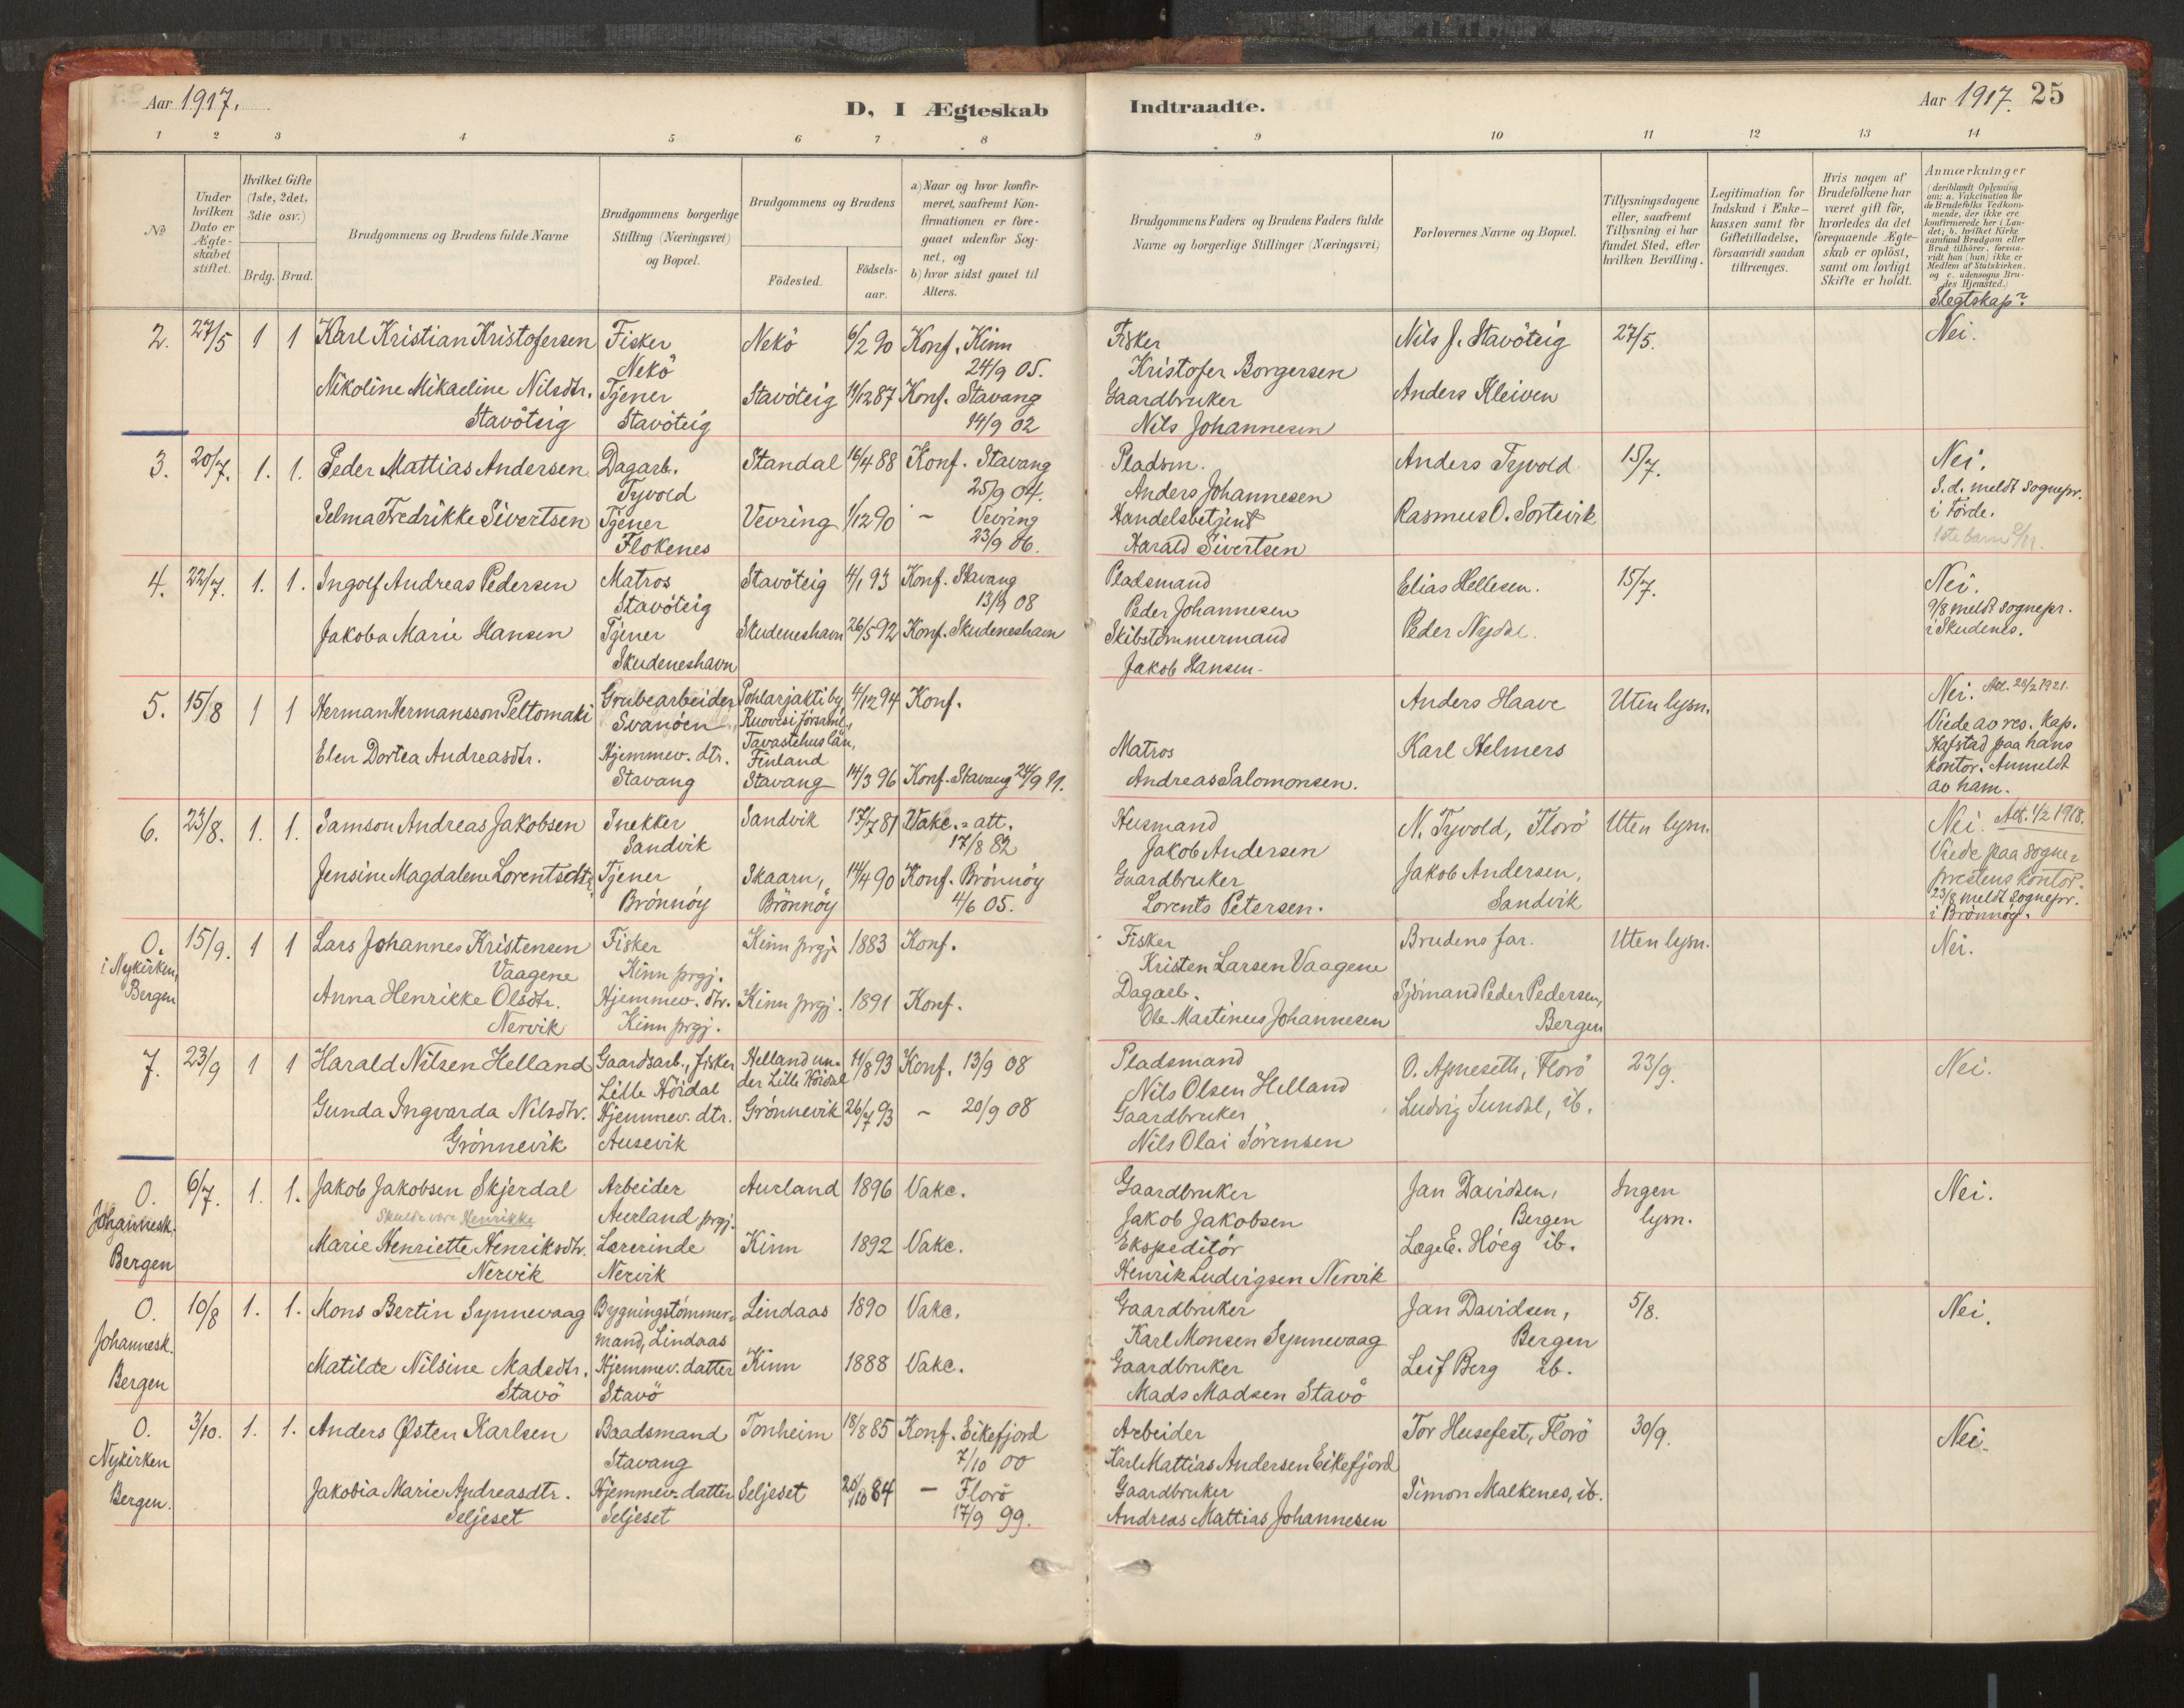 Aar 1917.
D, I Ægteskab
Indtraadte.
Aar 1917. 25
1 2 3 4 5 6 7 8 9 10 11 12 13 14
No
Under hvilken Dato er Ægteskabet stiftet.
Hvilket Gifte (1ste, 2det, 3die osv.)
Brdg. Brud.
Brudgommens og Brudens fulde Navne
Brudgommens borgerlige Stilling (Næringsvei) og Bopæl.
Brudgommens og Brudens
Födested.
Födsels-aar.
a) Naar og hvor konfirmeret, saafremt Konfirmationen er foregaaet udenfor Sognet, og
b) hvor sidst gaaet til Alters.
Brudgommens Faders og Brudens Faders fulde Navne og borgerlige Stillinger (Næringsvei)
Forlovernes Navne og Bopæl.
Tillysningsdagene eller, saafremt Tillysning ei har fundet Sted, efter hvilken Bevilling.
Legitimation for Indskud i Enkekassen samt for Giftetilladelse, forsaavidt saadan tiltrænges.
Hvis nogen af Brudefolkene har været gift för, hvorledes da det foregaaende Ægteskab er oplöst, samt om lovligt Skifte er holdt.
Anmærkninger
(deriblandt Oplysning om: a. Vakcination for de Brudefolks Vedkommende, der ikke ere konfirmerede her i Landet; b. hvilket Kirkesamfund Brudgom eller Brud tilhörer, forsaavidt han (hun) ikke er Medlem af Statskirken, og c. udensogns Brudes Hjemsted.)
Slegtskap?
2. 27/5 1 1 Karl Kristian Kristofersen Fisker Nekö 6/2 90 Konf. Kinn Fisker Nils J. Stavöteig 27/5. Nei.
Nekö 24/9 05. Kristofer Borgersen
Nikoline Mikaeline Nilsdtr. Tjener Stavöteig 11/12 87 Konf. Stavang Gaardbruker Anders Kleiven
Stavöteig Stavöteig 14/9 02 Nils Johannesen
3. 20/7. 1. 1. Peder Mattias Andersen Dagarb. Standal 16/4 88 Konf. Stavang Pladsm. Anders Tyvold 15/7. Nei.
Tyvold 25/9 04. Anders Johannesen S. d. meldt sognepr.
Selma Fredrikke Sivertsen Tjener Vevring 1/12 90 - Vevring Handelsbetjent Rasmus O. Sortevik i Förde.
Flokenes 23/9 06. Harald Sivertsen 1ste barn
4. 22/7. 1. 1. Ingolf Andreas Pedersen Matros Stavöteig 4/1 93 Konf. Stavang Pladsmand Elias Hellesen. 15/7. Nei.
Stavöteig 13/9 08 Peder Johannesen 9/8 meldt sognepr.
Jakoba Marie Hansen Tjener Skudeneshavn 26/5 92 Konf. Skudeneshavn Skibstömmermand Peder Nydal. i Skudenes.
Skudeneshavn Jakob Hansen
5. 15/8 1 1 Herman Hermansson Peltomaki Grubearbeider Pohlarjakti by 4/12 94 Konf. Anders Haave Uten lysn. Nei. Att. 28/2 1921.
Svanöen Ruovesi forsaml., Viede av res. kap.
Tavastehus län, Matros Karl Helmers Hafstad paa hans
Elen Dortea Andreasdtr. Hjemmev. dtr. Finland kontor. Anmeldt
Stavang Stavang 14/3 96 Konf. Stavang 24/9 11. Andreas Salomonsen. av ham.
6. 23/8. 1. 1. Samson Andreas Jakobsen Snekker Sandvik 17/7 81 Vakc.-att. Husmand N. Tyvold, Florö Uten lysn. Nei. Att. 1/2 1918.
Sandvik 17/8 82 Jakob Andersen Viede paa sogne-
Jensine Magdalene Lorentsdtr. Tjener Skaarn, 14/4 90 Konf. Brönnöy Gaardbruker Jakob Andersen, prestens kontor.
Brönnöy Brönnöy 4/6 05. Lorents Petersen. Sandvik 23/8 meldt sognepr.
i Brönnöy.
O. 15/9. 1 1 Lars Johannes Kristensen Fisker Kinn prgj. 1883 Konf. Fisker Brudens far. Uten lysn. Nei.
i Nykirken, Vaagene Kinn prgj. Kristen Larsen Vaagene
Bergen Anna Henrikke Olsdtr. Hjemmev. dtr. Kinn prgj. 1891 Konf. Dagarb. Sjömand Peder Pedersen,
Nervik Kinn prgj. Ole Martinus Johannesen Bergen
7. 23/9 1 1 Harald Nilsen Helland Gaardsarb., fisker Helland un- 11/8 93 Konf. 13/9 08 Pladsmand O. Apneseth, Florö 23/9. Nei.
Lille Höidal der Lille Höidal Nils Olsen Helland
Gunda Ingvarda Nilsdtr. Hjemmev. dtr. Grönnevik 26/7 93 - 20/9 08 Gaardbruker Ludvig Sundal, ib.
Grönnevik Ausevik Nils Olai Sörensen
O. 6/7. 1. 1. Jakob Jakobsen Skjerdal Arbeider Aurland 1896 Vakc. Gaardbruker Jan Davidsen, Ingen Nei.
Johannesk. Skulde være Henrikke Aurland prgj. Jakob Jakobsen Bergen lysn.
Marie Henriette Henriksdtr. Lærerinde Kinn 1892 Vakc. Ekspeditör Læge E. Höeg ib.
Bergen Nervik Nervik Henrik Ludvigsen Nervik
O. 10/8 1. 1. Mons Bertin Synnevaag Bygningstömmer- Lindaas 1890 Vakc. Gaardbruker Jan Davidsen, 5/8. Nei.
Johannesk. mand, Lindaas Karl Monsen Synnevaag Bergen
Bergen Matilde Nilsine Madsdtr. Hjemmev. datter Kinn 1888 Vakc. Gaardbruker Leif Berg ib.
Stavö Stavö Mads Madsen Stavö
O. 3/10. 1. 1. Anders Østen Karlsen Baadsmand Tonheim 18/8 85 Konf. Eikefjord Arbeider Tor Husefest, Florö 30/9. Nei.
Nykirken Stavang 7/10 00 Karl Mattias Andersen Eikefjord
Bergen. Jakobia Marie Andreasdtr. Hjemmev. datter Seljeset 26/10 84 - Florö Gaardbruker Simon Malkenes, ib.
Seljeset Seljeset 17/9 99. Andreas Mattias Johannesen